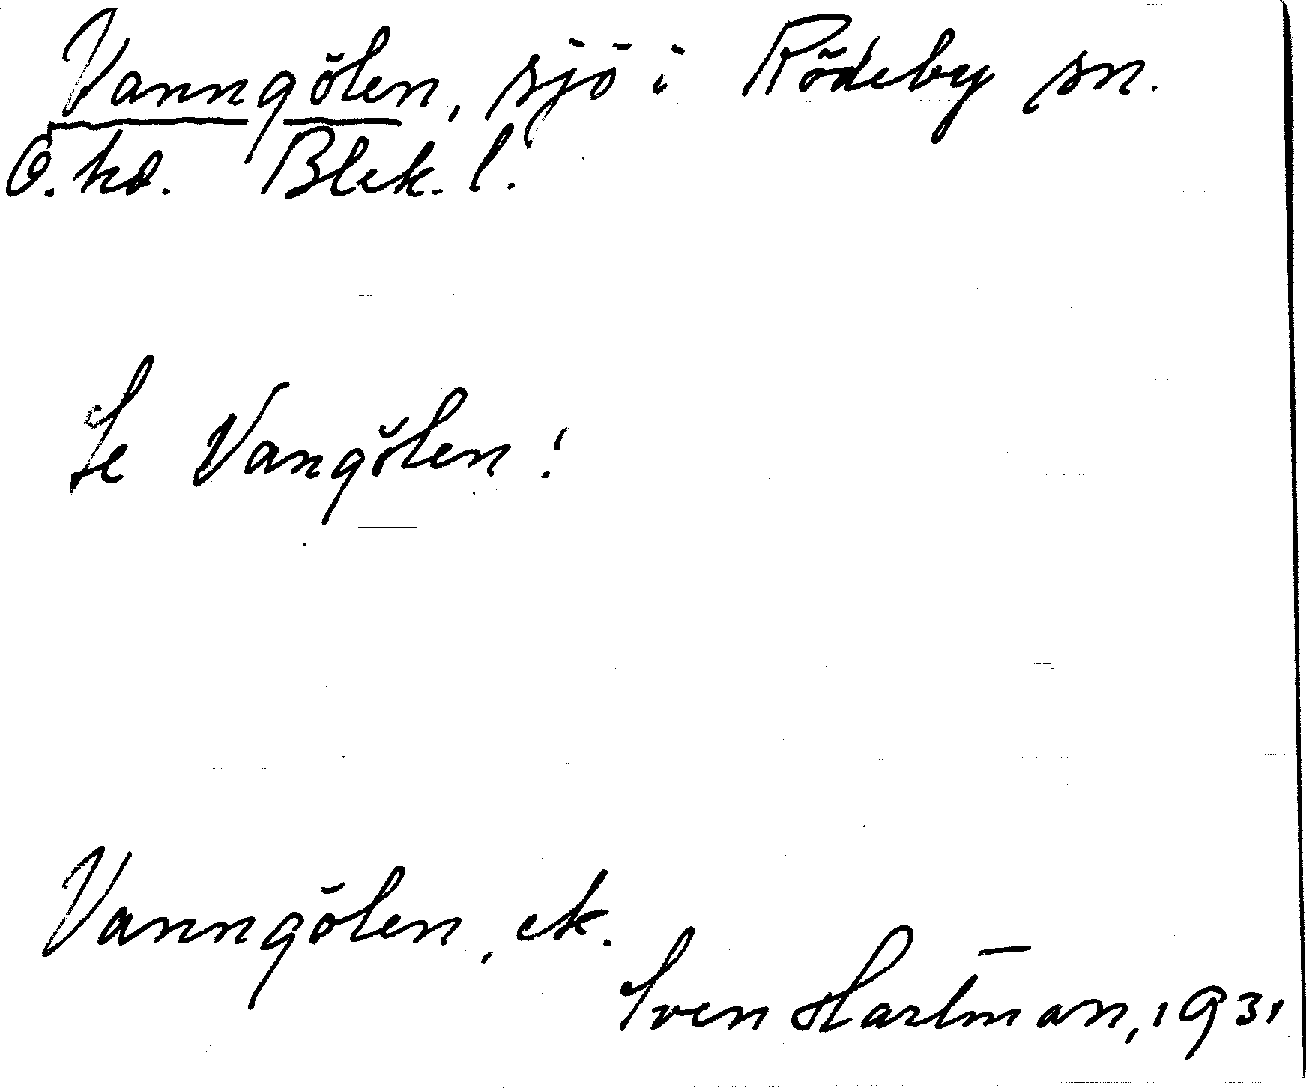 Vanngölen, sjö i Rödeby sn.
Ö. hd. Blek. l.
Se Vangölen!
Vanngölen, ek.
Sven Hartman, 1931